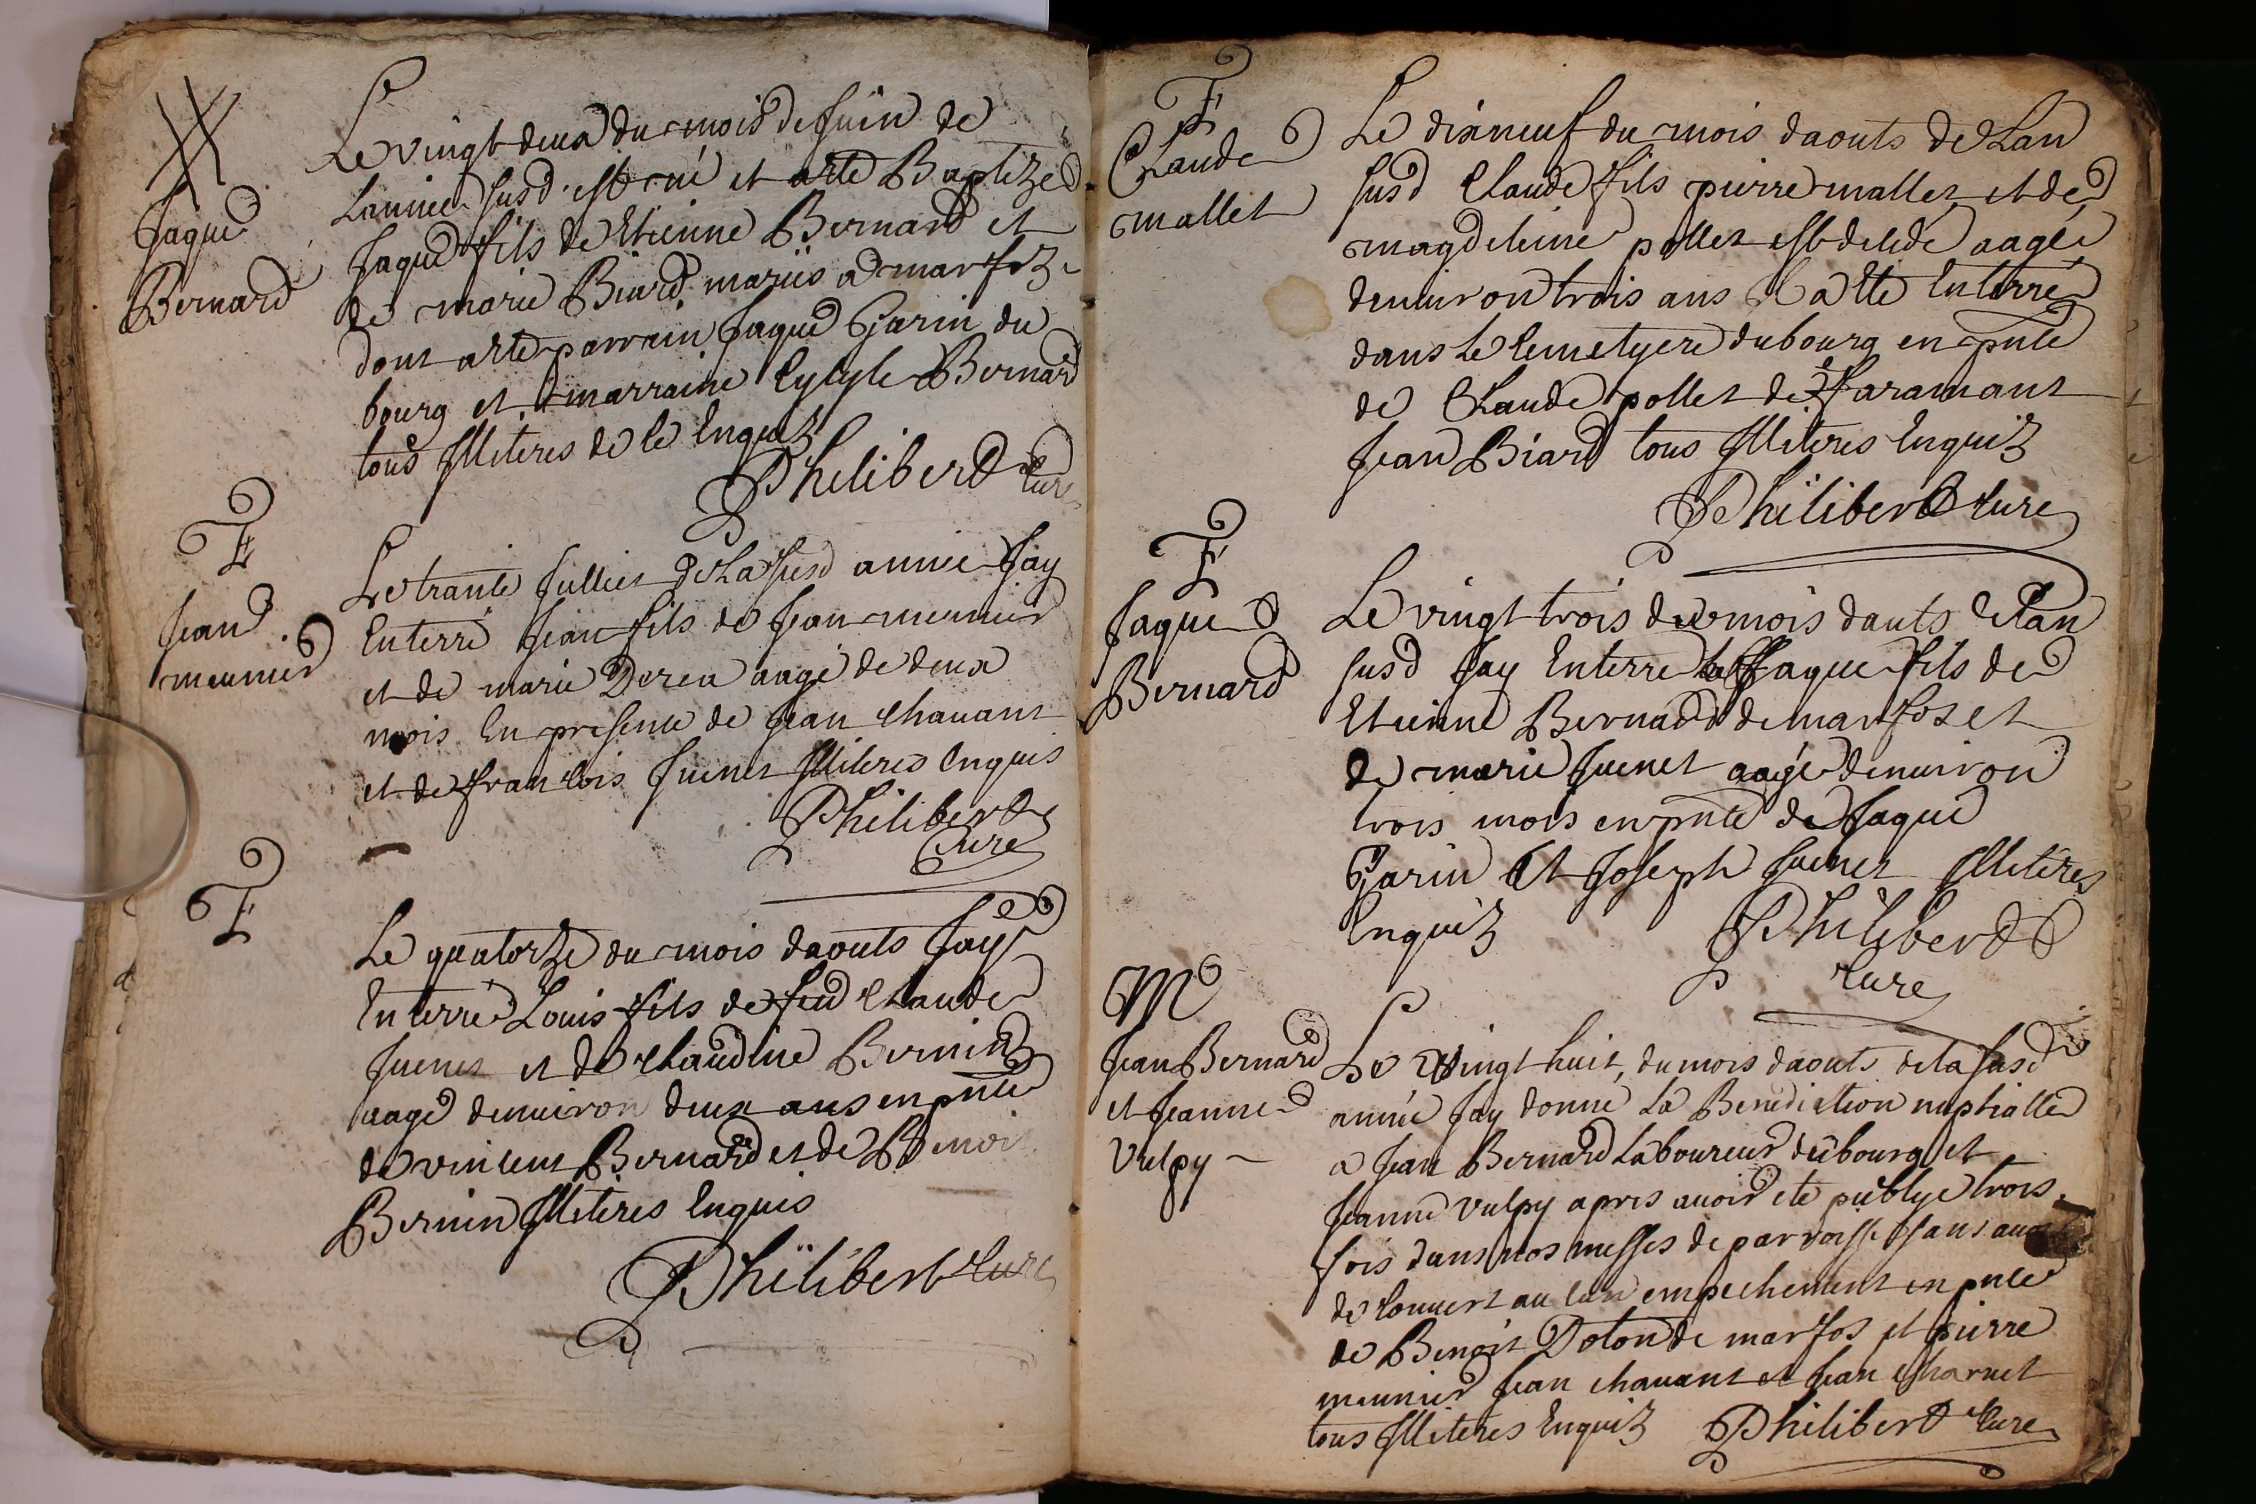 Jaque
Bernard
Le vingt deux du mois de Juin de
Lannee susd. est né et a été Baptizé
Jaque fils de Etienne Bernard et
de marie Biard mariés a marfoz
dont a été parrain Jaque Garin du
bourg et marraine Cycyle Bernard
tous Illiteres de ce Enquiz
Philiberd Curé
F
Jean
meunier
Le trante Julliet de La susd annee Jay
Enterré Jean fils de Jean meunier
et de marie Dorea aagé de deux
mois En presence de Jean Chavant
et de francois Juenet Illiteres Enquis
Philiberd
Curé
F
Le quatorze du mois daouts Jay
Enterré Louis fils de feu Claude
Juenet et de Claudine Bernin
aagé denviron deux ans en pnce
de vincent Bernard et de Benoi
Bernin Illiteres Enquis
Philibert Curé
F
Claude
mallet
Le dixneuf du mois daouts de Lan
susd Claude fils pierre mallet et de
magdeleine pollet est decedé aagé
denviron trois ans Et a été Enterré
dans le Cemetyere du bourg en pnce
de Claude pollet de faramant
Jean Biard tous Illiteres Enquiz
Philiberd Curé
F
Jaque
Bernard
Le vingt trois du mois dauts de Lan
susd Jay Enterre Jaque fils de
Etienne Bernard de marfos et
de marie Juenet aagé denviron
trois mois en pnce de Jaque
Garin Et Joseph Juenet Illiteres
Enquiz Philiberd
Curé
M
Jean Bernard
et Jeanne
Vulpy
Le vingt huit, du mois daouts de la susd
année Jay donné La Benediction nuptialle
a Jean Bernard Laboureur du bourg et
Jeanne Vulpy apres avoir ete publye trois
fois dans nos messes de parroisse sans
decouvert aucun empechement en pnce
de Benoit Doton de marfos et pierre
meunier Jean Chavant et Jean Charnet
tous Illiteres Enquiz Philiberd Curé